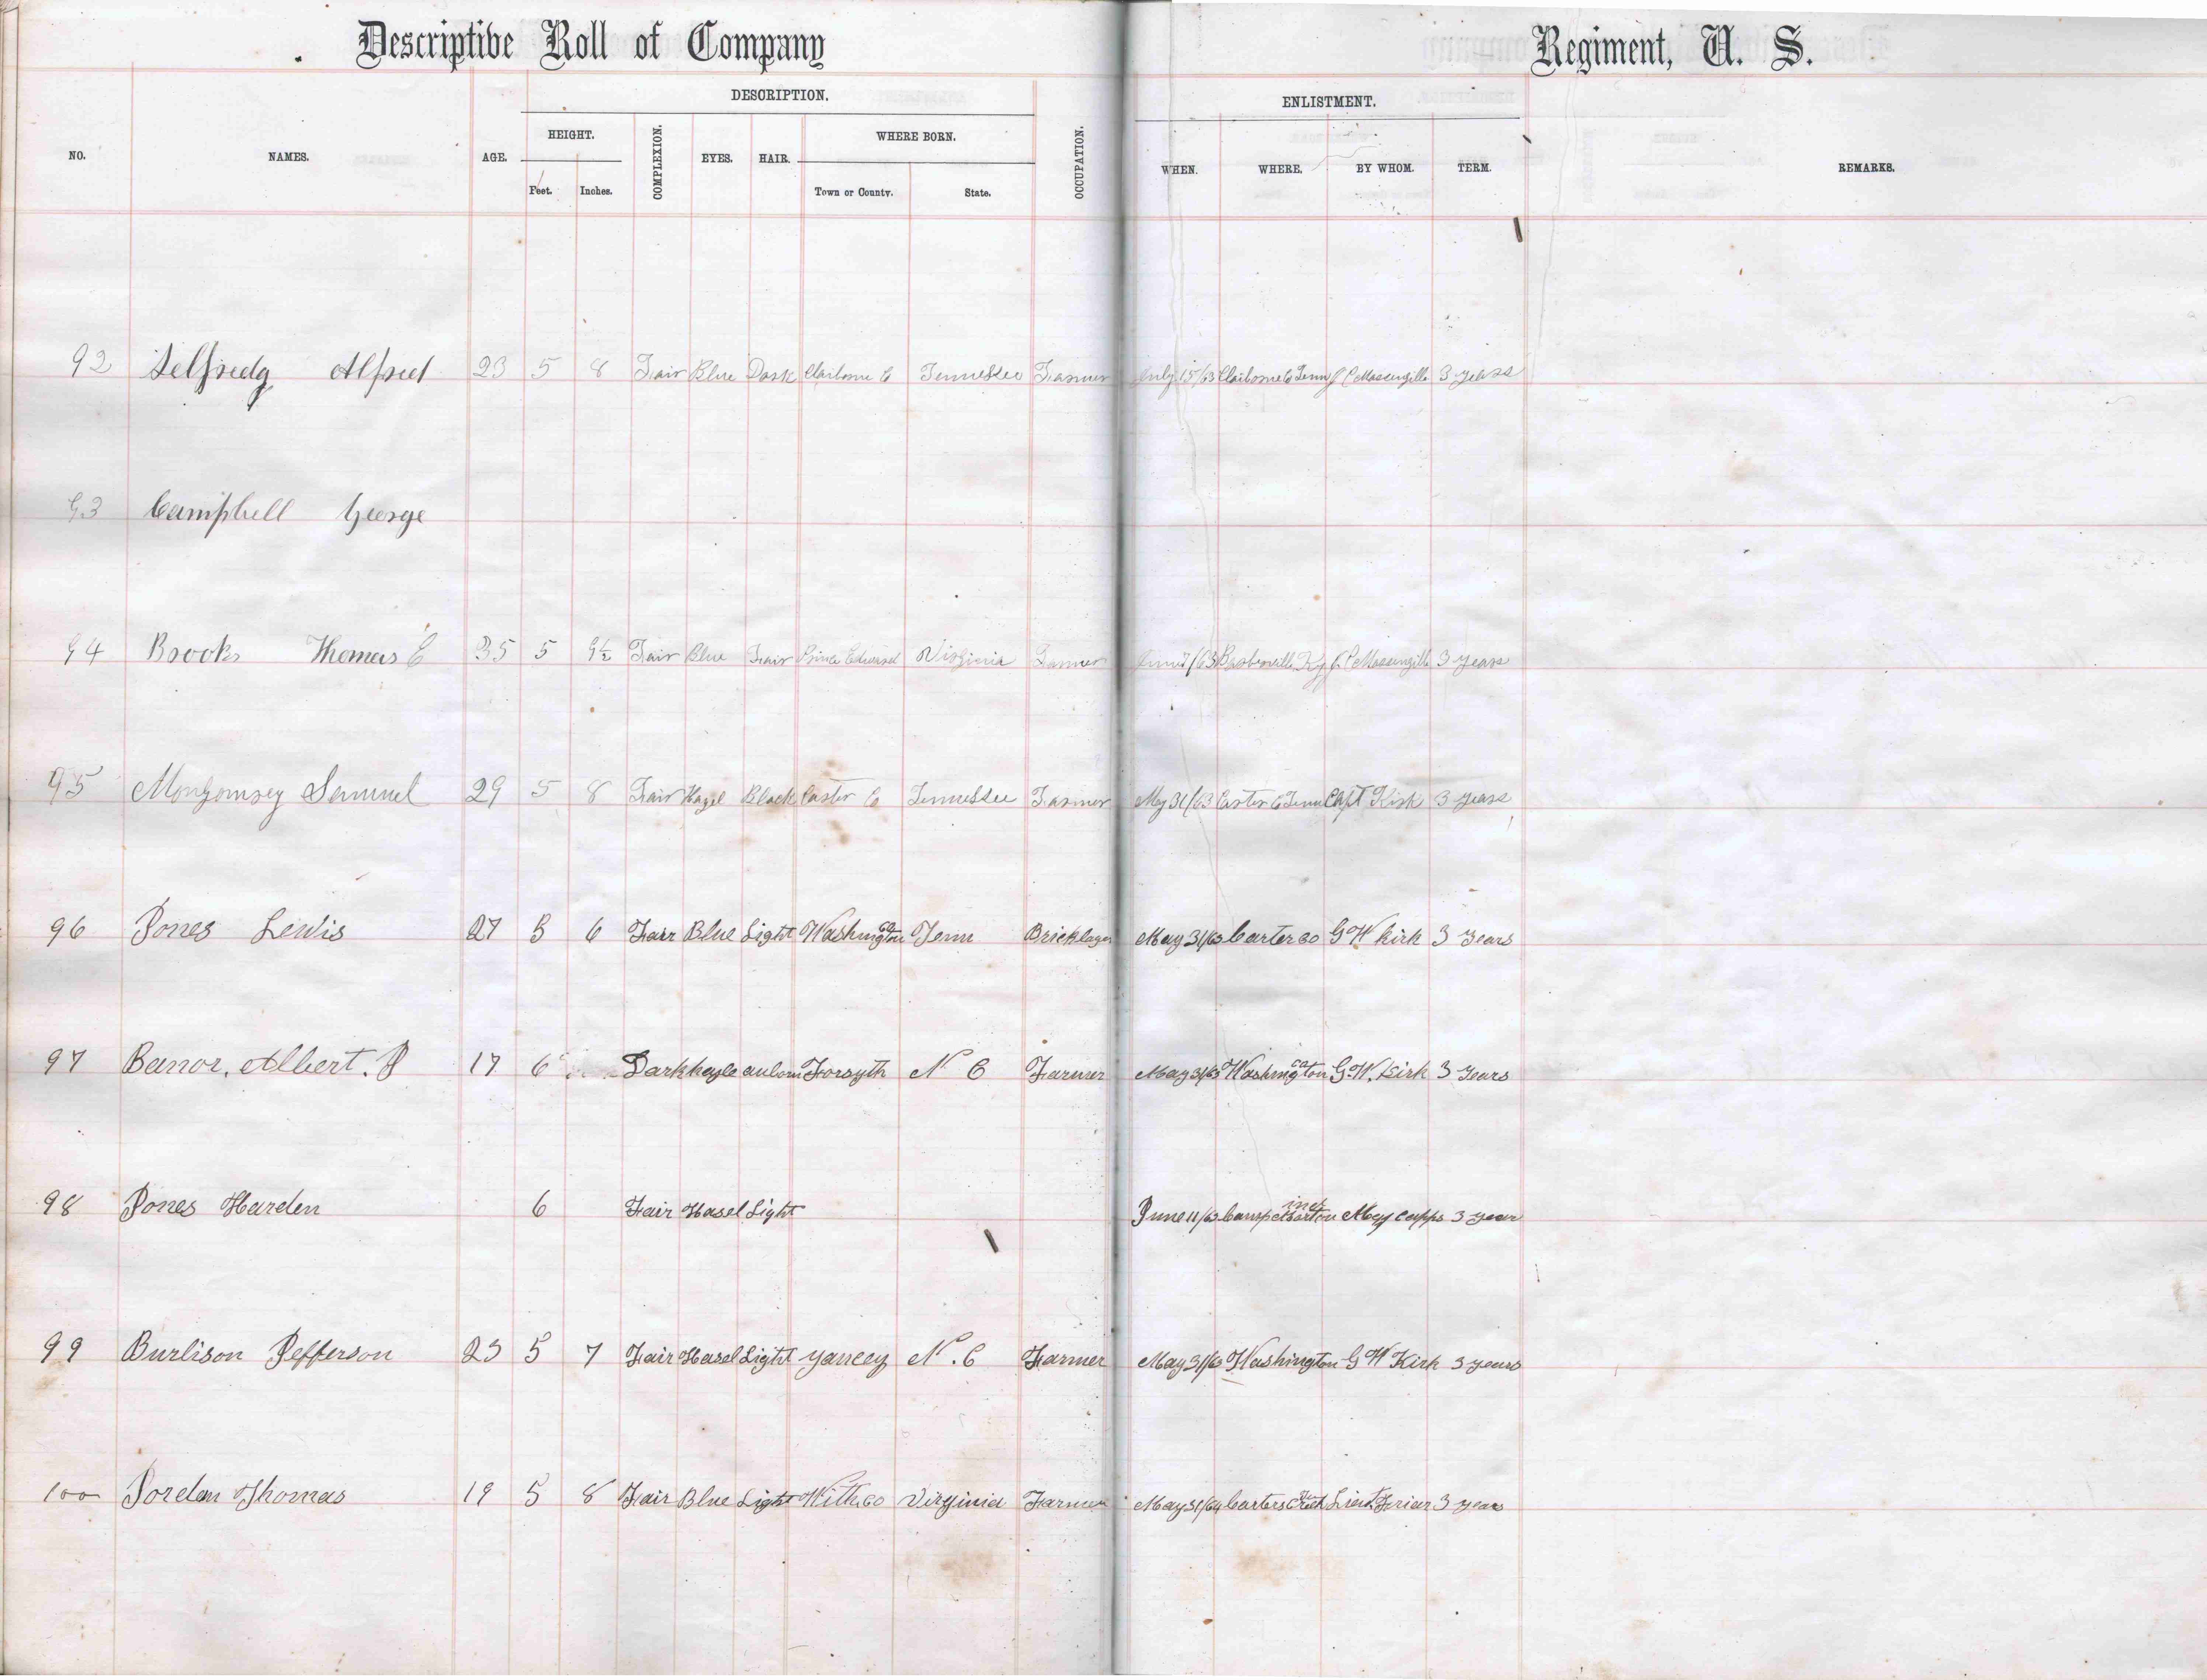 Descriptive Roll of Company Regiment, U. S.
DESCRIPTION. ENLISTMENT.
HEIGHT. WHERE BORN.
NO. NAMES. AGE. COMPLEXION. EYES. HAIR. OCCUPATION. WHEN. WHERE. BY WHOM. TERM. REMARKS.
Feet. Inches. Town or County. State.
92 Selfridg Alfred 23 5 8 Fair Blue Dark Claiborne Co Tennessee Farmer July 15/63 Claiborne Co Tenn J C Massengille 3 years
93 Campbell George
94 Brooks Thomas E 35 5 9½ Fair Blue Fair Prince Edward Virginia Barberville Ky J. C Massengill 3 years
95 Montgomrey Samuel 29 5 8 Fair Hazel Black Carter Co Tennessee Farmer May 31/63 Carter Co Tenn Capt Kirk 3 years
96 Jones Lewis 27 5 6 Fair Blue Light Washington Co Tenn Bricklayer May 31/63 Carter co G W Kirk 3 years
97 Albert. J 17 6 Dark hazle auborn Forsyth N C Farmer May 31/63 Washington co G. W. Kirk 3 Years
98 Jones Harden 6 Fair Hasel Light June 11/63 Camp Capps 3 year
99 Burlison Jefferson 23 5 7 Fair Hasel Light yancey N. C Farmer May 31/63 Washington G W Kirk 3 years
100 Jordan Thomas 19 5 8 Fair Blue Light Withe co Virginia Farmer Carters Lieut Friar 3 years